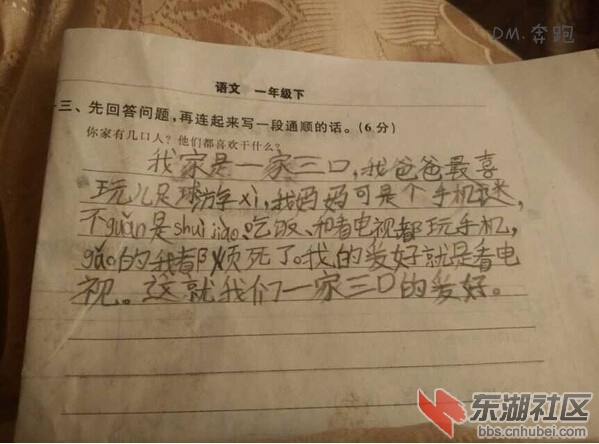 DM.奔跑
语文 一年级下
三、先回答问题,再连起来写一段通顺的话。(6分)
你家有几口人?他们都喜欢干什么?
我家是一家三口,我爸爸最喜
玩儿足球游xì,我妈妈可是个手机迷,
不guǎn是shuì jiào、吃饭、和看电视都玩手机,
gǎo的我都烦死了。我的爱好就是看电
视。这就我们一家三口的爱好。
东湖社区
bbs.cnhubei.com